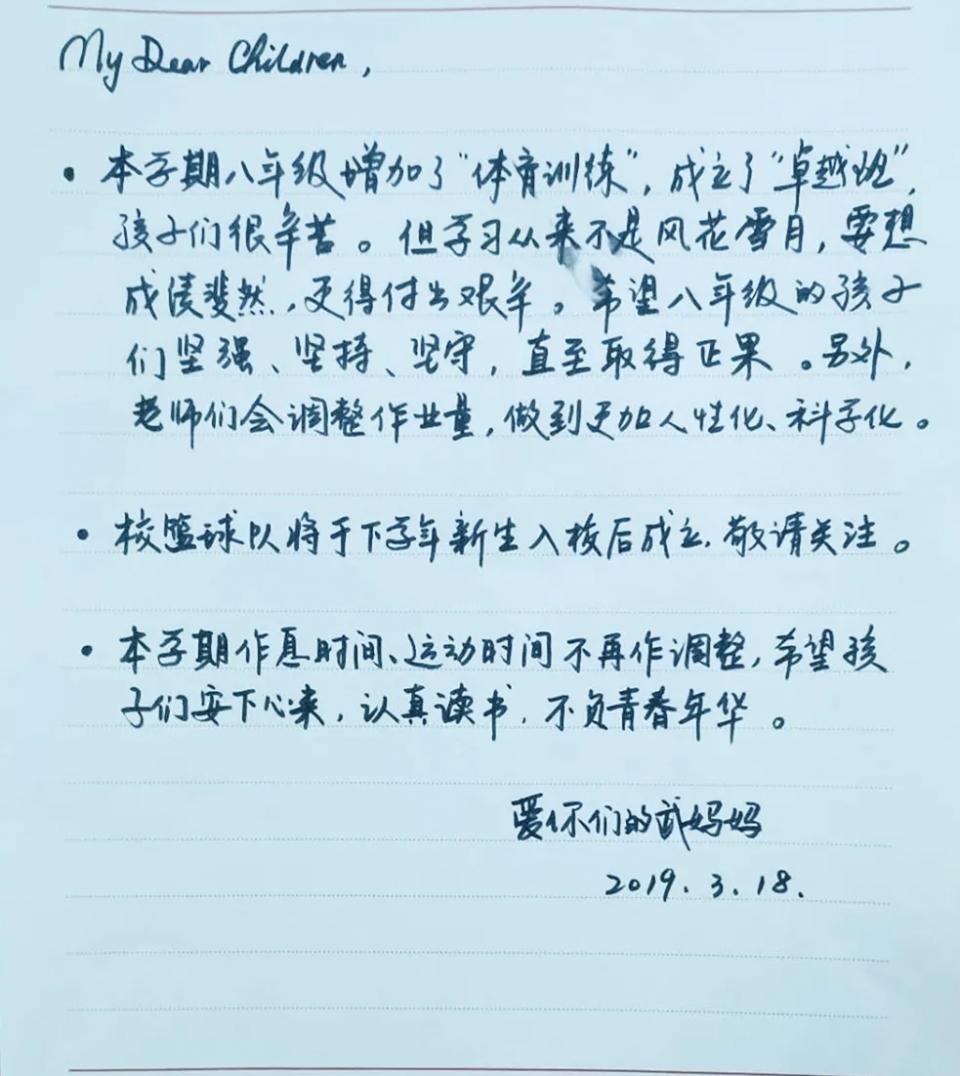 My Dear Children,
• 本学期八年级增加了“体育训练”，成立了“卓越班”，
孩子们很辛苦。但学习从来不是风花雪月，要想
成绩斐然，更得付出艰辛。希望八年级的孩子
们坚强、坚持、坚守，直至取得正果。另外，
老师们会调整作业量，做到更加人性化、科学化。
• 校篮球队将于下学年新生入校后成立，敬请关注。
• 本学期作息时间、运动时间不再作调整，希望孩
子们安下心来，认真读书，不负青春年华。
爱你们的武妈妈
2019.3.18.